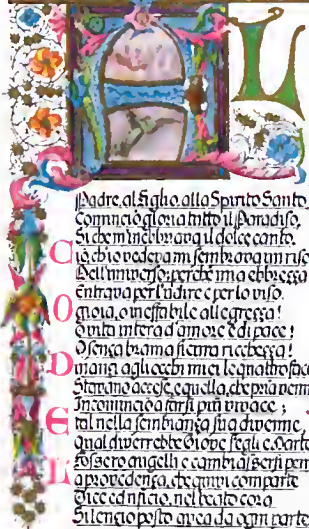 AL
Padre, al Figlio, alla Spirito Santo,
Cominciò gloria tutto il Paradiso,
Si che m'inebbriava il dolce canto.
Ciò ch'io vedeva mi sembrava un riso
Dell'universo; perchè mia ebbrezza
Entrava per l'udire e per lo viso.
O gioia, o ineffabile allegrezza!
O vita intera d'amore e di pace!
O senza brama sicura ricchezza!
Dinanzi agli occhi miei le quattro face
Stavano accese, e quella, che pria venne
Incominciò a farsi più vivace;
E tal nella sembianza sua divenne,
Qual diverrebbe Giove s'egli e Marte
Fossero augelli e cambiassersi pen
La provedenza, che quivi comparte
Vice ed uficio, nel beato coro
Silenzio posto avea da ogni parte